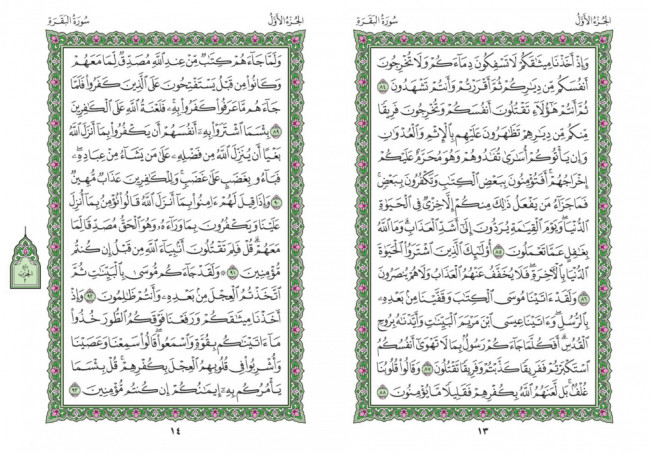 الجزء الأول
سورة البقرة
وَإِذْ أَخَذْنَا مِيثَٰقَكُمْ لَا تَسْفِكُونَ دِمَآءَكُمْ وَلَا تُخْرِجُونَ
أَنفُسَكُم مِّن دِيَٰرِكُمْ ثُمَّ أَقْرَرْتُمْ وَأَنتُمْ تَشْهَدُونَ ٨٤
ثُمَّ أَنتُمْ هَٰٓؤُلَآءِ تَقْتُلُونَ أَنفُسَكُمْ وَتُخْرِجُونَ فَرِيقًا
مِّنكُم مِّن دِيَٰرِهِمْ تَظَٰهَرُونَ عَلَيْهِم بِٱلْإِثْمِ وَٱلْعُدْوَٰنِ
وَإِن يَأْتُوكُمْ أُسَٰرَىٰ تُفَٰدُوهُمْ وَهُوَ مُحَرَّمٌ عَلَيْكُمْ
إِخْرَاجُهُمْ ۚ أَفَتُؤْمِنُونَ بِبَعْضِ ٱلْكِتَٰبِ وَتَكْفُرُونَ بِبَعْضٍ ۚ
فَمَا جَزَآءُ مَن يَفْعَلُ ذَٰلِكَ مِنكُمْ إِلَّا خِزْىٌ فِى ٱلْحَيَوٰةِ
ٱلدُّنْيَا ۖ وَيَوْمَ ٱلْقِيَٰمَةِ يُرَدُّونَ إِلَىٰٓ أَشَدِّ ٱلْعَذَابِ ۗ وَمَا ٱللَّهُ
بِغَٰفِلٍ عَمَّا تَعْمَلُونَ ٨٥ أُو۟لَٰٓئِكَ ٱلَّذِينَ ٱشْتَرَوُا۟ ٱلْحَيَوٰةَ
ٱلدُّنْيَا بِٱلْءَاخِرَةِ ۖ فَلَا يُخَفَّفُ عَنْهُمُ ٱلْعَذَابُ وَلَا هُمْ يُنصَرُونَ
٨٦ وَلَقَدْ ءَاتَيْنَا مُوسَى ٱلْكِتَٰبَ وَقَفَّيْنَا مِنۢ بَعْدِهِۦ
بِٱلرُّسُلِ ۖ وَءَاتَيْنَا عِيسَى ٱبْنَ مَرْيَمَ ٱلْبَيِّنَٰتِ وَأَيَّدْنَٰهُ بِرُوحِ
ٱلْقُدُسِ ۗ أَفَكُلَّمَا جَآءَكُمْ رَسُولٌۢ بِمَا لَا تَهْوَىٰٓ أَنفُسُكُمُ
ٱسْتَكْبَرْتُمْ فَفَرِيقًا كَذَّبْتُمْ وَفَرِيقًا تَقْتُلُونَ ٨٧ وَقَالُوا۟ قُلُوبُنَا
غُلْفٌۢ ۚ بَل لَّعَنَهُمُ ٱللَّهُ بِكُفْرِهِمْ فَقَلِيلًا مَّا يُؤْمِنُونَ ٨٨
١٣
الجزء الأول
سورة البقرة
وَلَمَّا جَآءَهُمْ كِتَٰبٌ مِّنْ عِندِ ٱللَّهِ مُصَدِّقٌ لِّمَا مَعَهُمْ
وَكَانُوا۟ مِن قَبْلُ يَسْتَفْتِحُونَ عَلَى ٱلَّذِينَ كَفَرُوا۟ فَلَمَّا
جَآءَهُم مَّا عَرَفُوا۟ كَفَرُوا۟ بِهِۦ ۚ فَلَعْنَةُ ٱللَّهِ عَلَى ٱلْكَٰفِرِينَ
٨٩ بِئْسَمَا ٱشْتَرَوْا۟ بِهِۦٓ أَنفُسَهُمْ أَن يَكْفُرُوا۟ بِمَآ أَنزَلَ ٱللَّهُ
بَغْيًا أَن يُنَزِّلَ ٱللَّهُ مِن فَضْلِهِۦ عَلَىٰ مَن يَشَآءُ مِنْ عِبَادِهِۦ ۖ
فَبَآءُو بِغَضَبٍ عَلَىٰ غَضَبٍ ۚ وَلِلْكَٰفِرِينَ عَذَابٌ مُّهِينٌ
٩٠ وَإِذَا قِيلَ لَهُمْ ءَامِنُوا۟ بِمَآ أَنزَلَ ٱللَّهُ قَالُوا۟ نُؤْمِنُ بِمَآ أُنزِلَ
عَلَيْنَا وَيَكْفُرُونَ بِمَا وَرَآءَهُۥ وَهُوَ ٱلْحَقُّ مُصَدِّقًا لِّمَا
مَعَهُمْ ۗ قُلْ فَلِمَ تَقْتُلُونَ أَنۢبِيَآءَ ٱللَّهِ مِن قَبْلُ إِن كُنتُم
مُّؤْمِنِينَ ٩١ وَلَقَدْ جَآءَكُم مُّوسَىٰ بِٱلْبَيِّنَٰتِ ثُمَّ
ٱتَّخَذْتُمُ ٱلْعِجْلَ مِنۢ بَعْدِهِۦ وَأَنتُمْ ظَٰلِمُونَ ٩٢ وَإِذْ
أَخَذْنَا مِيثَٰقَكُمْ وَرَفَعْنَا فَوْقَكُمُ ٱلطُّورَ خُذُوا۟
مَآ ءَاتَيْنَٰكُم بِقُوَّةٍ وَٱسْمَعُوا۟ ۖ قَالُوا۟ سَمِعْنَا وَعَصَيْنَا
وَأُشْرِبُوا۟ فِى قُلُوبِهِمُ ٱلْعِجْلَ بِكُفْرِهِمْ ۚ قُلْ بِئْسَمَا
يَأْمُرُكُم بِهِۦٓ إِيمَٰنُكُمْ إِن كُنتُم مُّؤْمِنِينَ ٩٣
١٤
الحزب